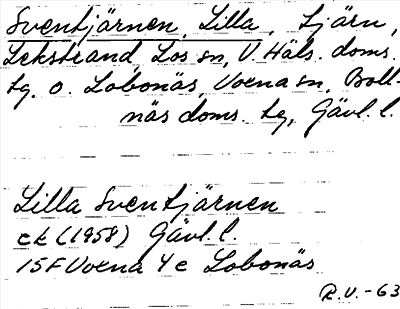 Sventjärnen, Lilla, tjärn,
Lekstrand, Los sn, V. Häls. doms.
tg. o. Lobonäs, Voxna sn, Boll-
näs doms. tg, Gävl. l.
Lilla Sventjärnen
ek (1958) Gävl. l.
15F Voxna 4 e Lobonäs
R.V. -63